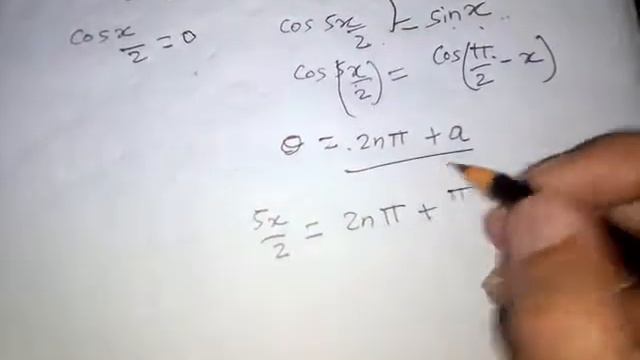 cos x/2 = 0
cos 5x/2 = sin x
cos(5x/2) = cos(π/2 - x)
θ = 2nπ + a
5x/2 = 2nπ + π